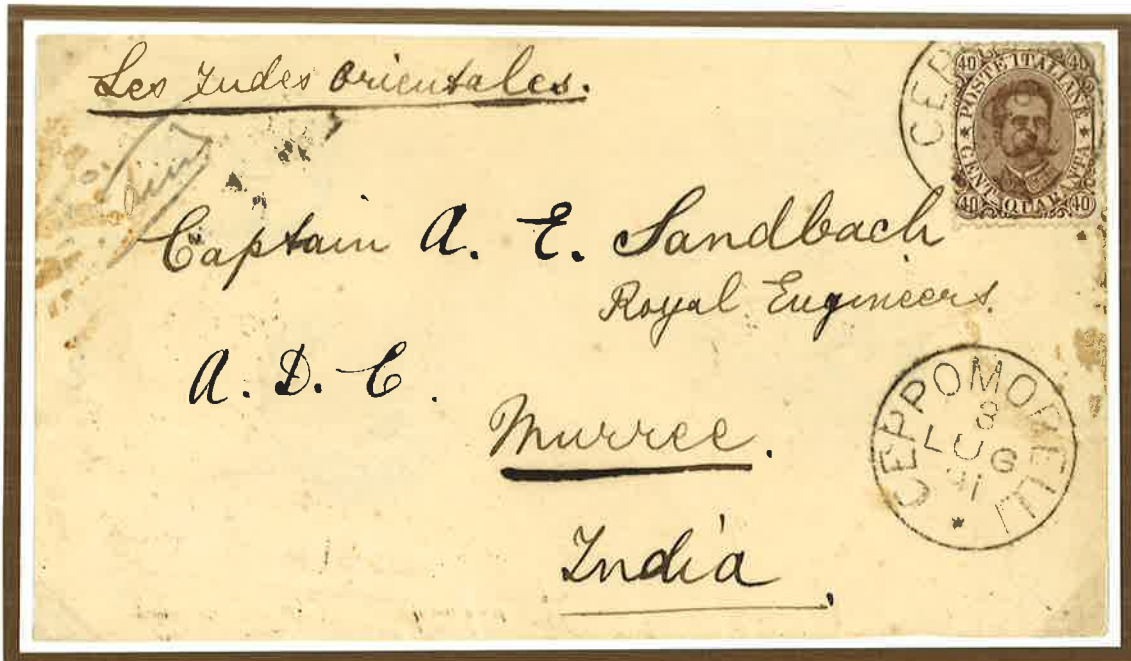 Les Indes Orientales.
CEP
40 POSTE ITALIANE 40
CENT. QUARANTA
40 40
Captain A. E. Sandbach
Royal Engineers.
A. D. C.
Murree.
India,
CEPPOMORELLI
8
LUG
91